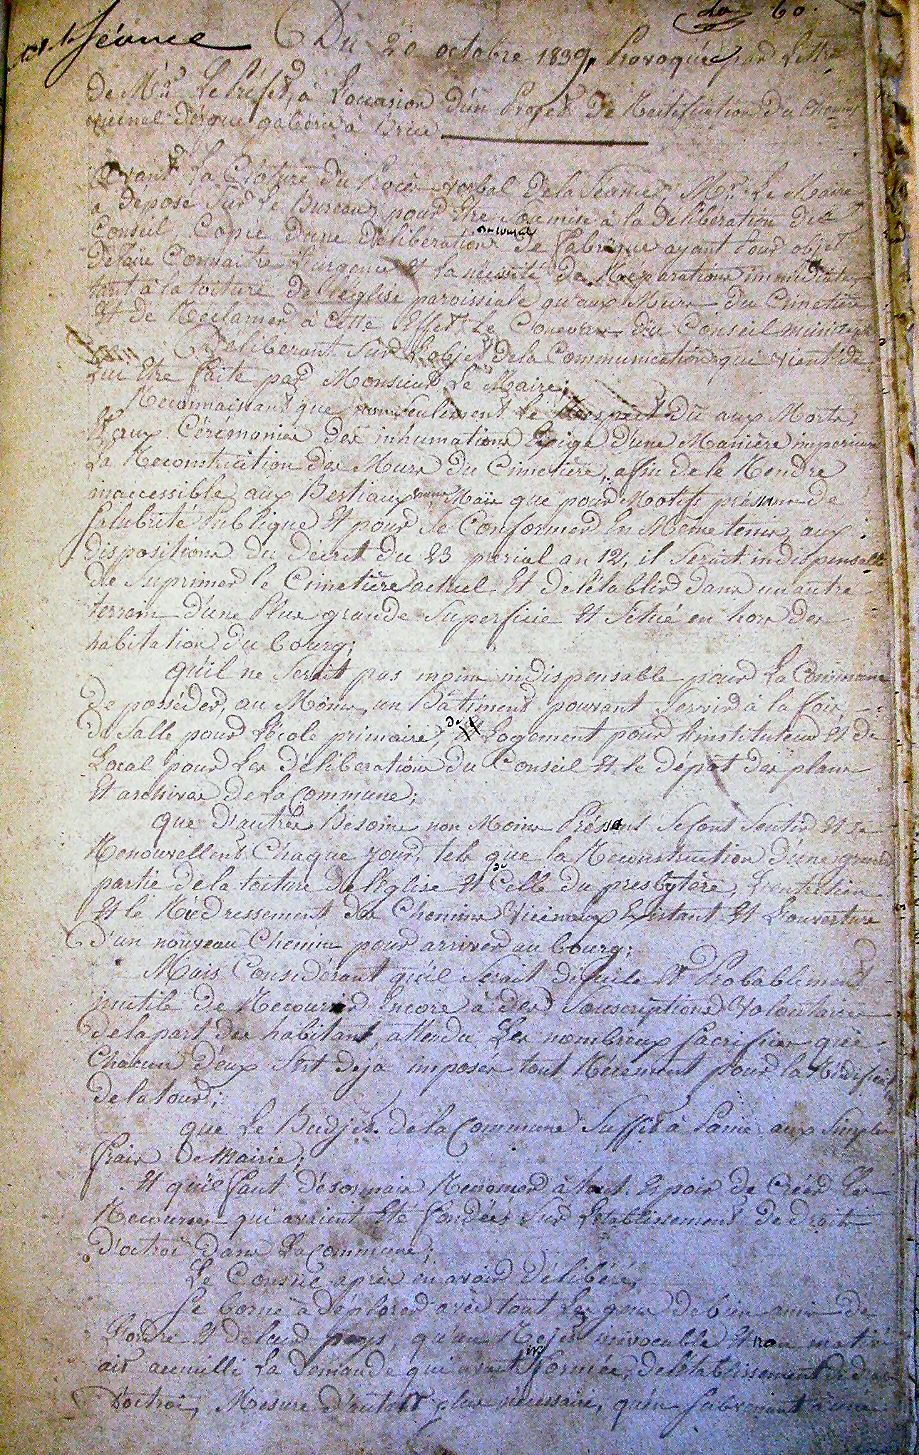 60.
Séance Du 20 octobre 1839, Provoquée par Lettre
de Mr. Le Préfet, à l'occasion d'un Projet De Rectification du chemin
vicinal d'érgué gabéric à
Avant la Cloture du Procès verbal de la Séance, Mr. Le Maire
a déposé Sur Le Bureau, pour Etre Soumise à la délibération du
Conseil, Copie d'une délibération de fabrique ayant pour objet
de faire Connaitre l'urgence Et la nécessité de Réparations immédiates,
tant à la toiture de l'Eglise paroissiale qu'aux Murs du Cimetière
Et de Réclamer à cette Effet Le Concours du Conseil municipal
Délibérant Sur L'objet de la Communication qui vient de
Lui Etre faite par Monsieur Le Maire;
Reconnaissant que non Seulement Le Respect dû aux Morts,
Et aux Cérémonies des inhumations Exige d'une Manière impérieuse
La Reconstruction des Murs du Cimetière, afin de le Rendre
inaccessible aux Bestiaux Mais que pour Motifs présumés de
Salubrité Publique Et pour Se Conformer En Même tems, aux
dispositions du décret du 23 prérial an 12, il Serait indispensable
de Suprimer le Cimetière actuel Et de l'établir dans un autre
terrain d'une Plus grande Superficie Et Situé en hors des
habitation du bourg;
qu'il ne Serait pas moins indispensable pour La Commune
de posséder, au Moins, un Bâtiment pouvant Servir à la fois,
de Salle pour L'école primaire, de Logement pour l'instituteur Et de
Local pour Les délibérations du Conseil Et le dépôt des plans
Et archives de La Commune;
que d'autres Besoins non Moins Préssans Se font Sentir Et Se
Renouvellent Chaque Jour, tels que la Reconstruction d'une grande
partie de la toiture de l'Eglise Et de Celle du presbytère, L'entretien
Et le Redressement des Chemins Vicinaux Existant Et L'ouverture
D'un nouveau Chemin pour arriver au bourg;
Mais Considérant qu'il Serait dificile Et Probablement
inutile de Recourir Encore à des Souscriptions Volontaires
de la part des habitans, attendu Les nombreux Sacrifices que
Chacun d'eux S'est déja imposés tout Récement pour la Réédification
de la tour;
que Le Budjet de la Commune Suffit à Paine aux Simples
frais de Mairie;
Et qu'il faut désormais Renoncer à tout Espoir de Créer Les
Ressources qui avaient Eté fondées Sur L'établissement de droits
D'octroi dans La Commune;
Le Conseil après en avoir délibéré,
Se borne à déplorer avec tout Les gens de bien amis de
L'ordre Et de leur pays, qu'un Rejet irrévocable Et non motivé
ait accueilli La demande qui avait formée, de l'établissement de droits
D'octroi, Mesure d'autant plus nécessaire, qu'en